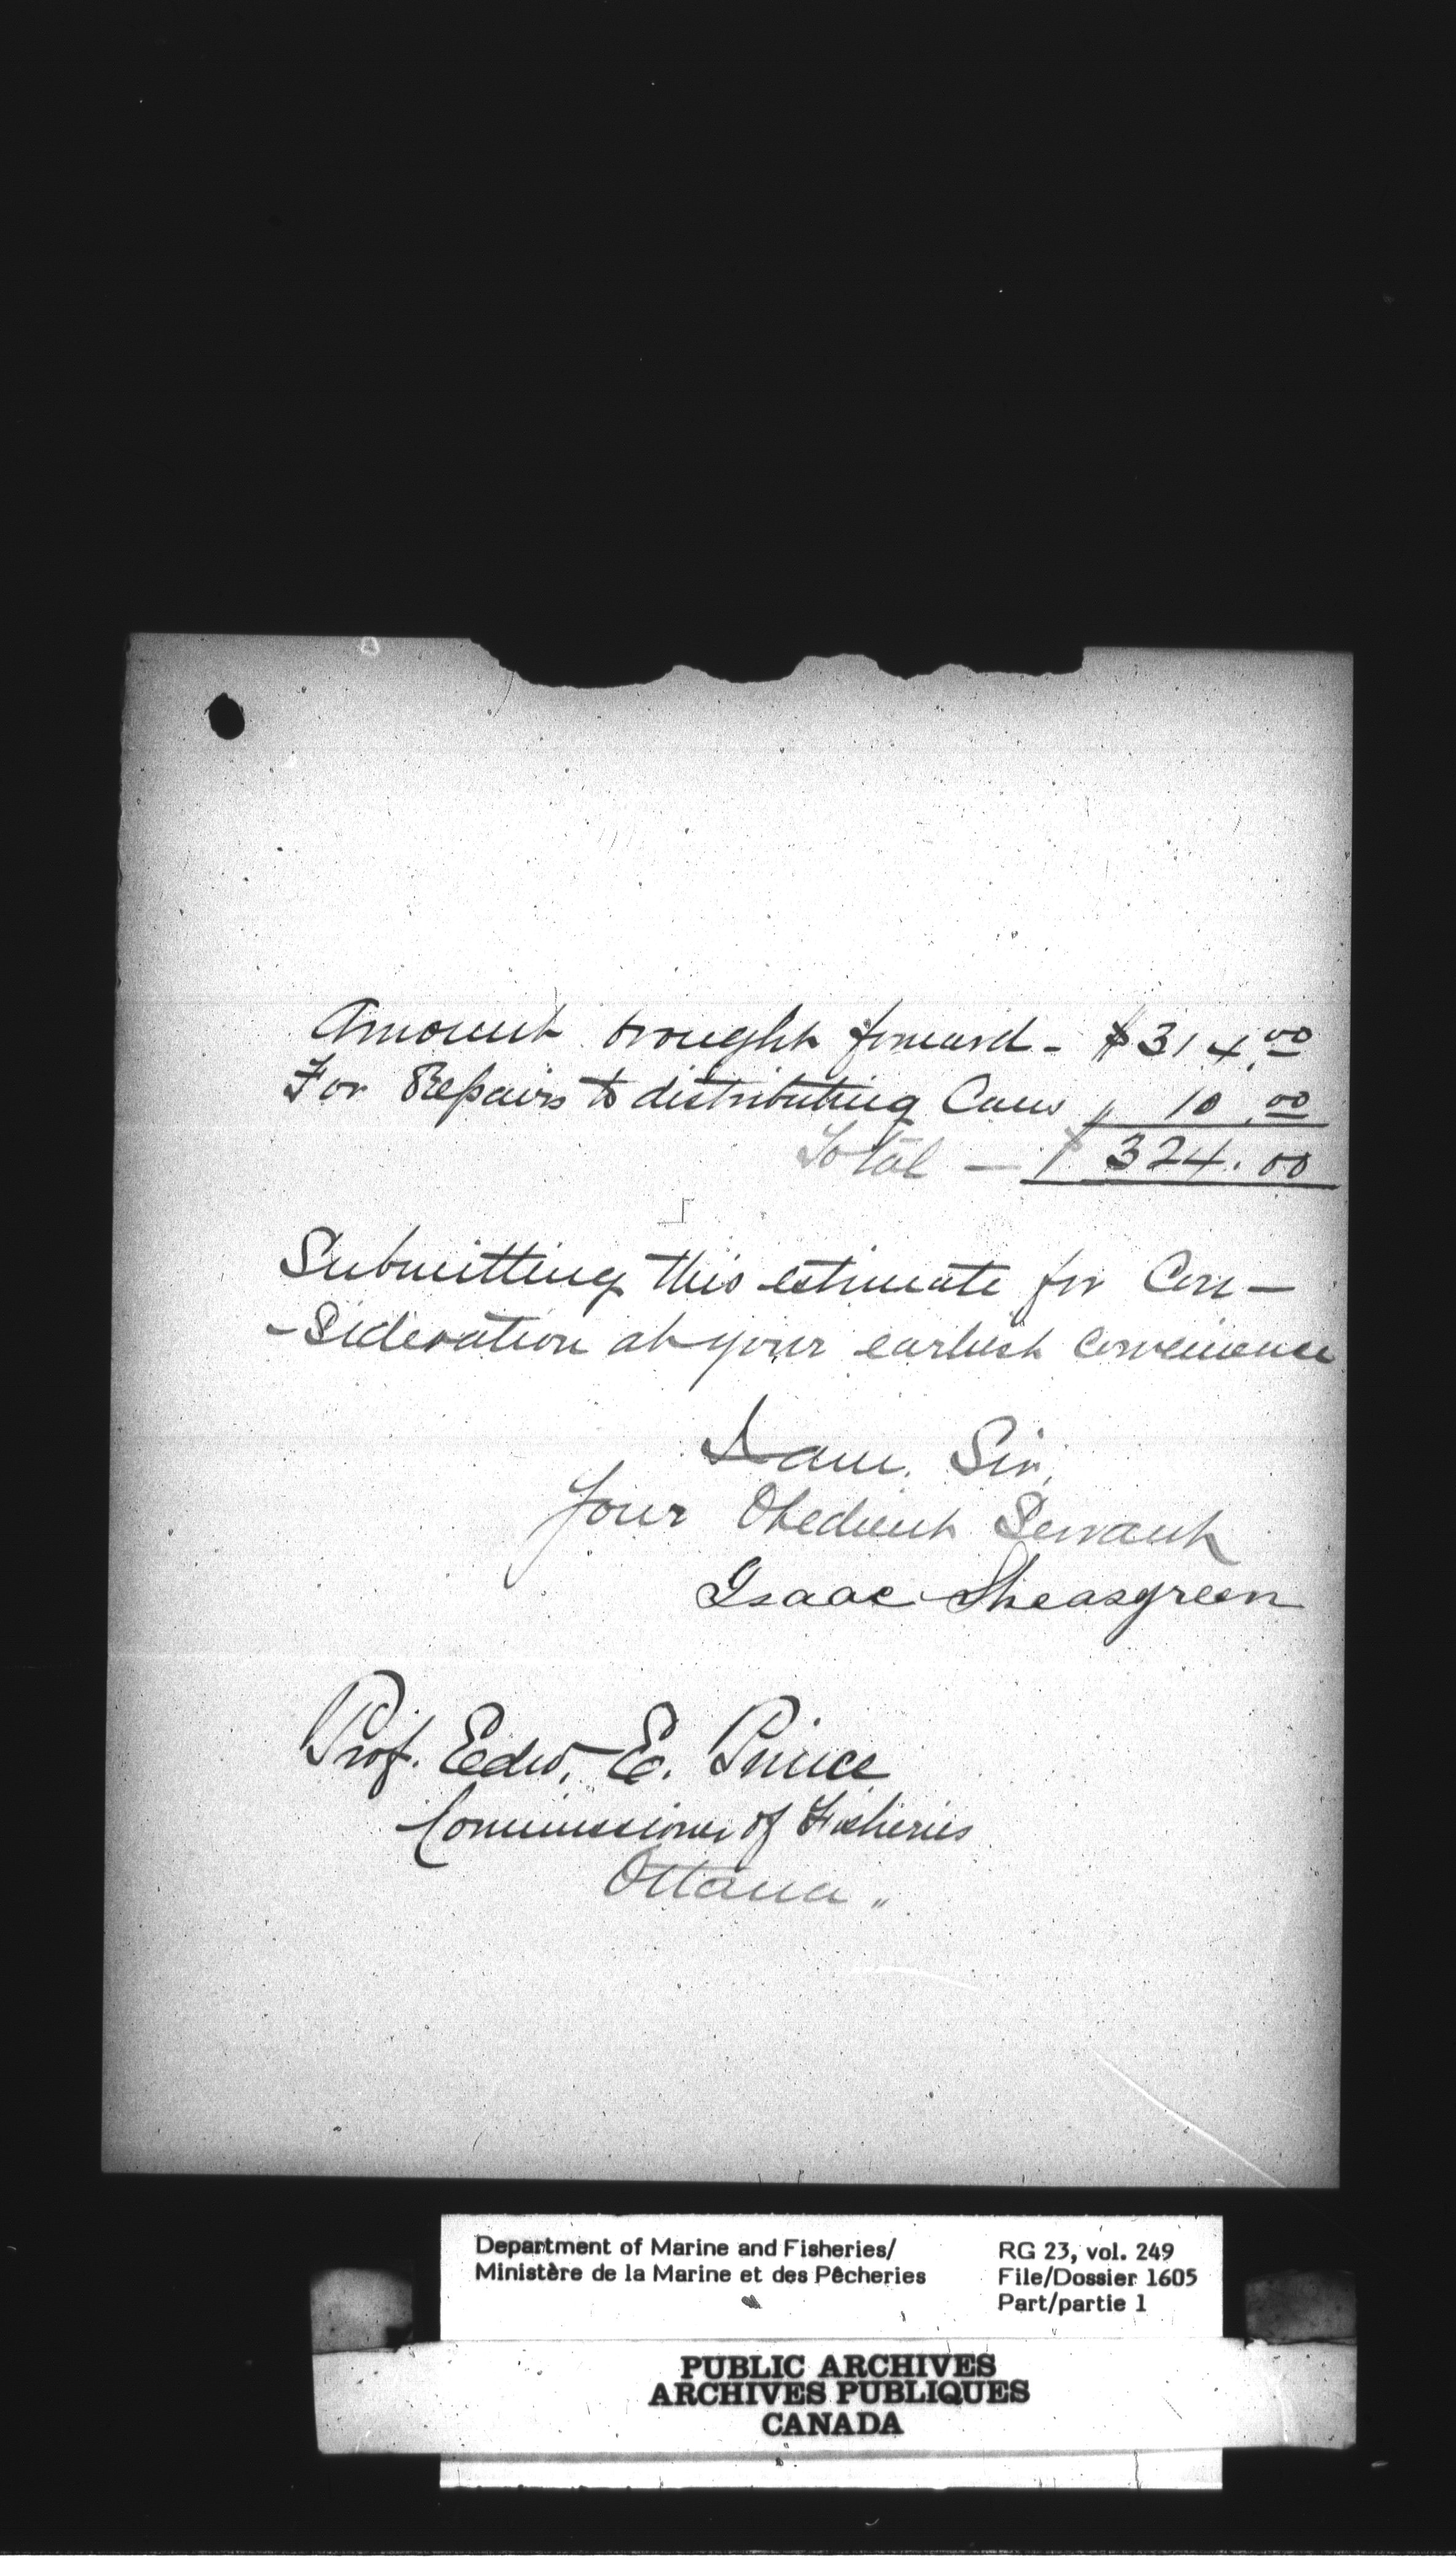 Amount brought forward - $314.00
For Repairs to distributing Cans " 10.00
Total — $ 324.00
Submitting this estimate for Con-
-Sideration at your earliest convenience
I am. Sir,
Your Obedient Servant
Isaac Sheasgreen
Prof. Edw. E. Prince
Commissioner of Fisheries
Ottawa "
Department of Marine and Fisheries/
Ministère de la Marine et des Pêcheries
RG 23, vol. 249
File/Dossier 1605
Part/partie 1
PUBLIC ARCHIVES
ARCHIVES PUBLIQUES
CANADA